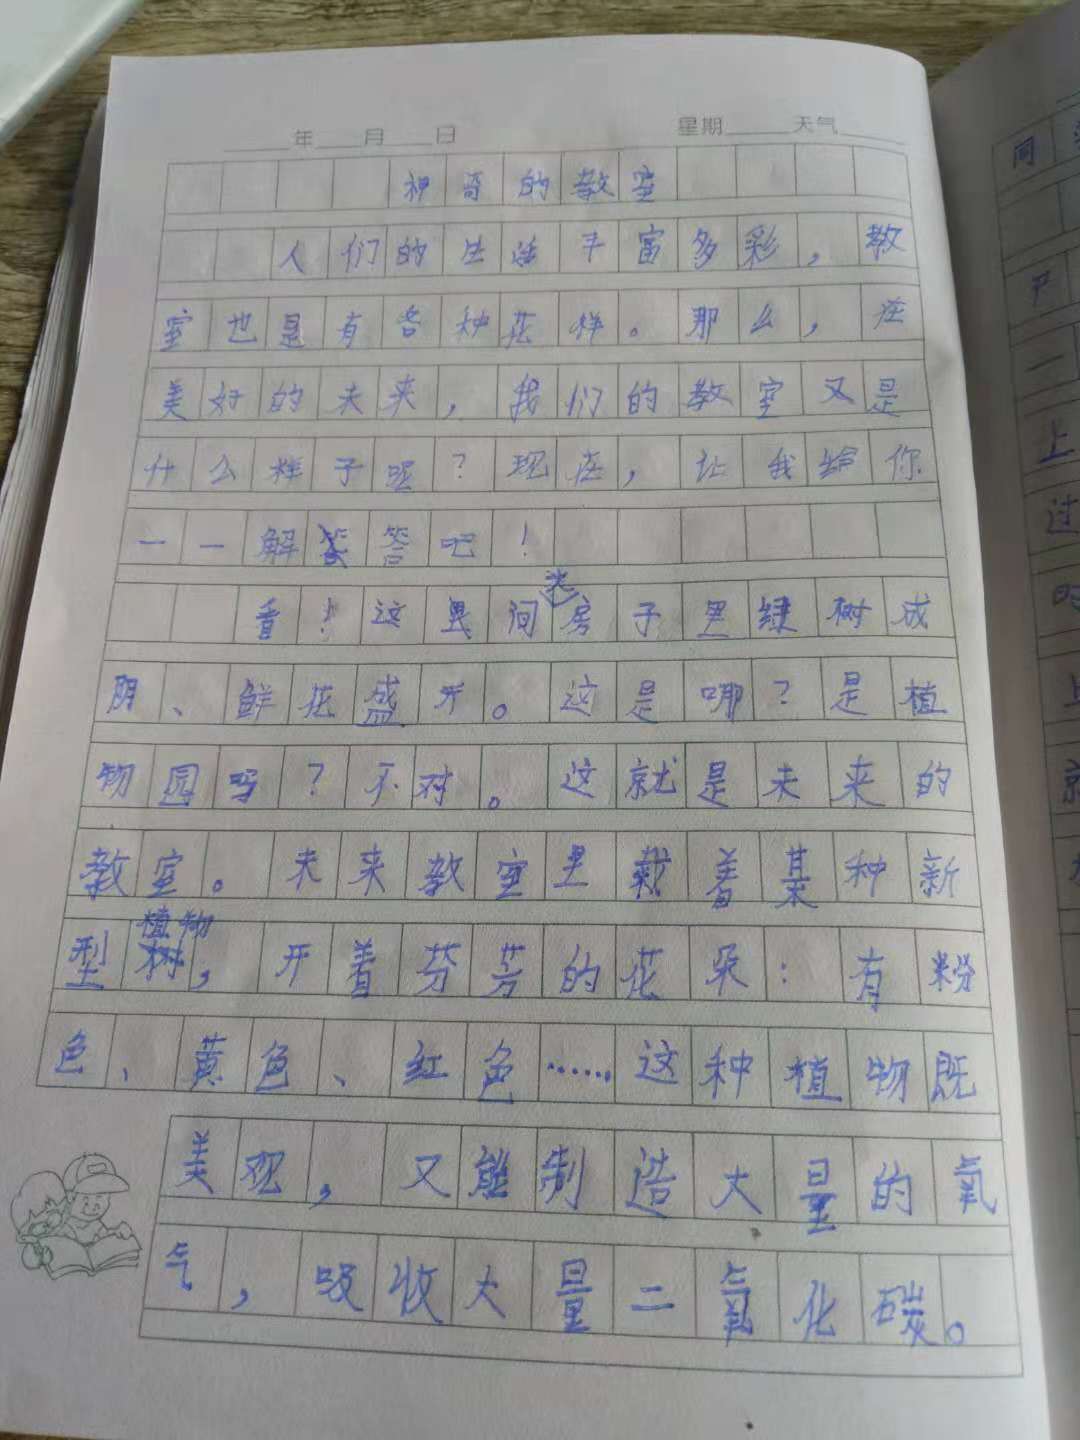 年 月 日 星期 天气
神奇的教室
人们的生活丰富多彩，教
室也是有各种花样。那么，在
美好的未来，我们的教室又是
什么样子呢？现在，让我给你
一一解答吧！
看！这里间类房子里绿树成
阴、鲜花盛开。这是哪？是植
物园吗？不对。这就是未来的
教室。未来教室里栽着某种新
型植物，开着芬芳的花朵：有粉
色、黄色、红色……这种植物既
美观，又能制造大量的氧
气，吸收大量二氧化碳。
同
尸
一
上
过